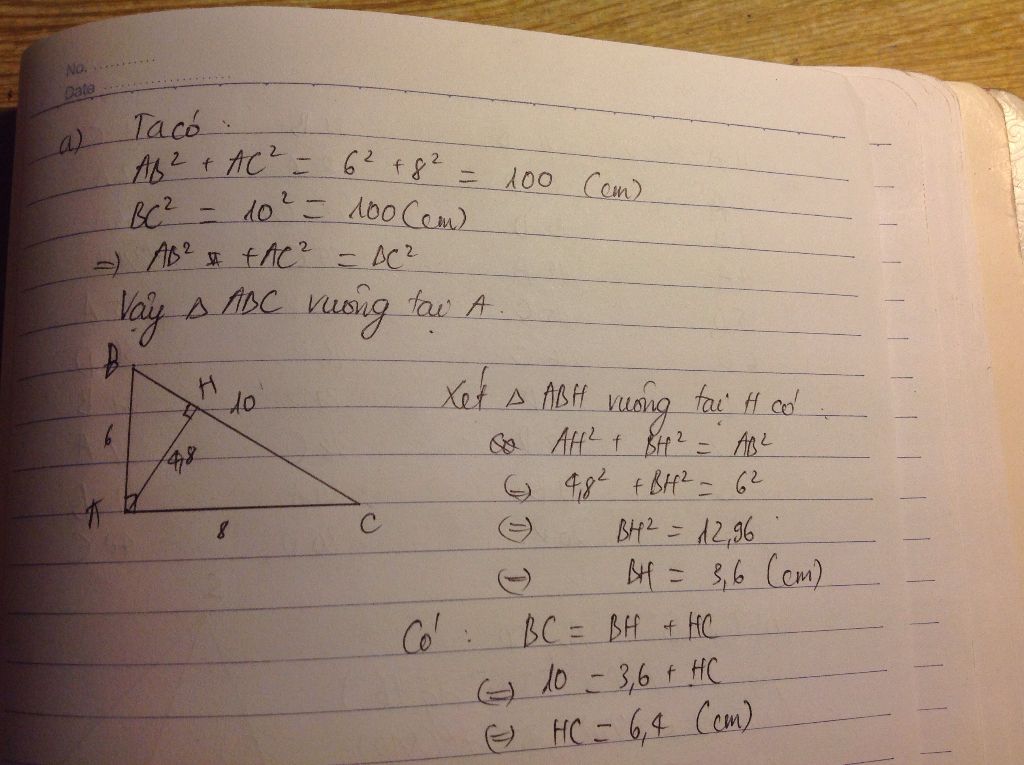 No. ............
Date ........................
a) Ta có :
AB² + AC² = 6² + 8² = 100 (cm)
BC² = 10² = 100 (cm)
=) AB² + AC² = BC²
Vậy Δ ABC vuông tại A.
B
H
10
6
4,8
A
8
C
Xét Δ ABH vuông tại H có :
AH² + BH² = AB²
(=) 4,8² + BH² = 6²
(=) BH² = 12,96
(=) BH = 3,6 (cm)
Có : BC = BH + HC
(=) 10 = 3,6 + HC
(=) HC = 6,4 (cm)